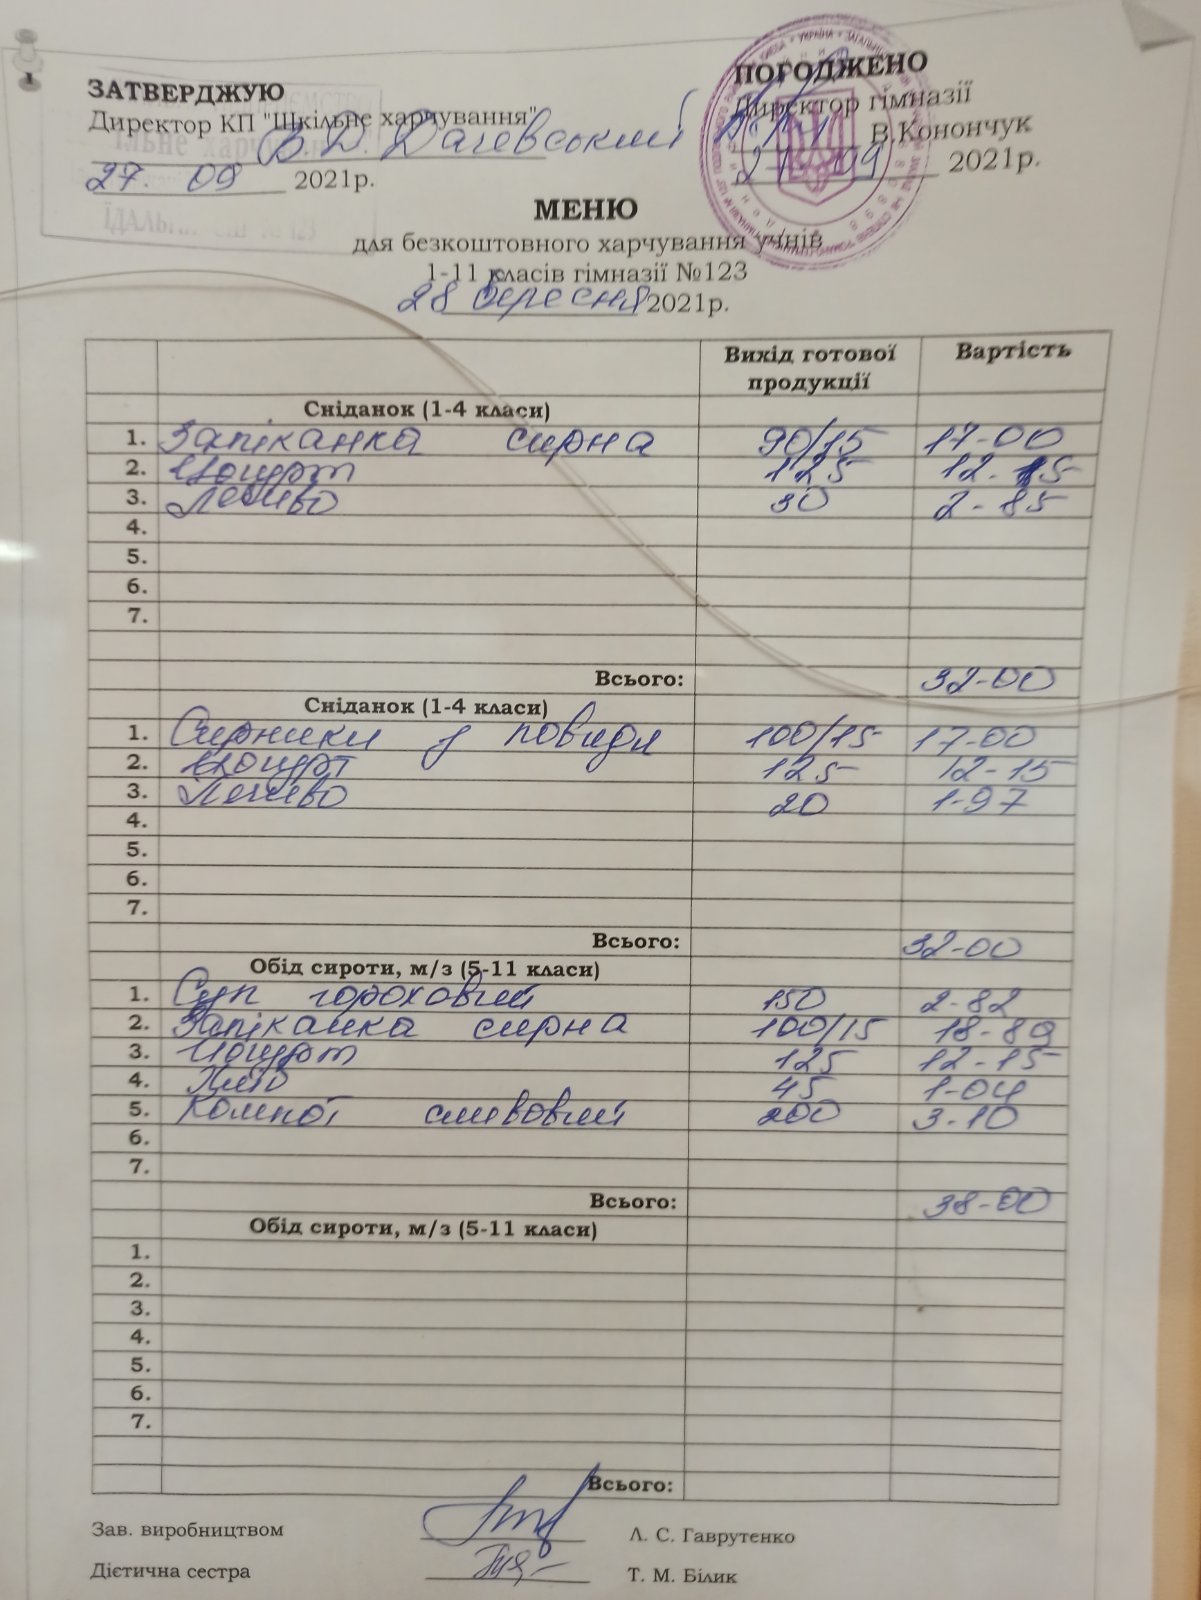 ЗАТВЕРДЖУЮ
Директор КП "Шкільне харчування"
В. Д. Дачевський
27. 09 2021р.
ПОГОДЖЕНО
Директор гімназії
В.Конончук
27 09 2021р.
МЕНЮ
для безкоштовного харчування учнів
1-11 класів гімназії №123
28 вересня 2021р.
Вихід готової продукції Вартість
Сніданок (1-4 класи)
1. Запіканка сирна 90/15 17-00
2. Йогурт 125 12-15
3. Печиво 30 2-85
4.
5.
6.
7.
Всього: 32-00
Сніданок (1-4 класи)
1. Сирники з повидл 100/15 17-00
2. Йогурт 125 12-15
3. Печиво 20 1-97
4.
5.
6.
7.
Всього: 32-00
Обід сироти, м/з (5-11 класи)
1. Суп гороховий 150 2-82
2. Запіканка сирна 100/15 18-89
3. Йогурт 125 12-15
4. Хліб 45 1-04
5. Компот сливовий 200 3-10
6.
7.
Всього: 38-00
Обід сироти, м/з (5-11 класи)
1.
2.
3.
4.
5.
6.
7.
Всього:
Зав. виробництвом Л. С. Гаврутенко
Дієтична сестра Т. М. Білик